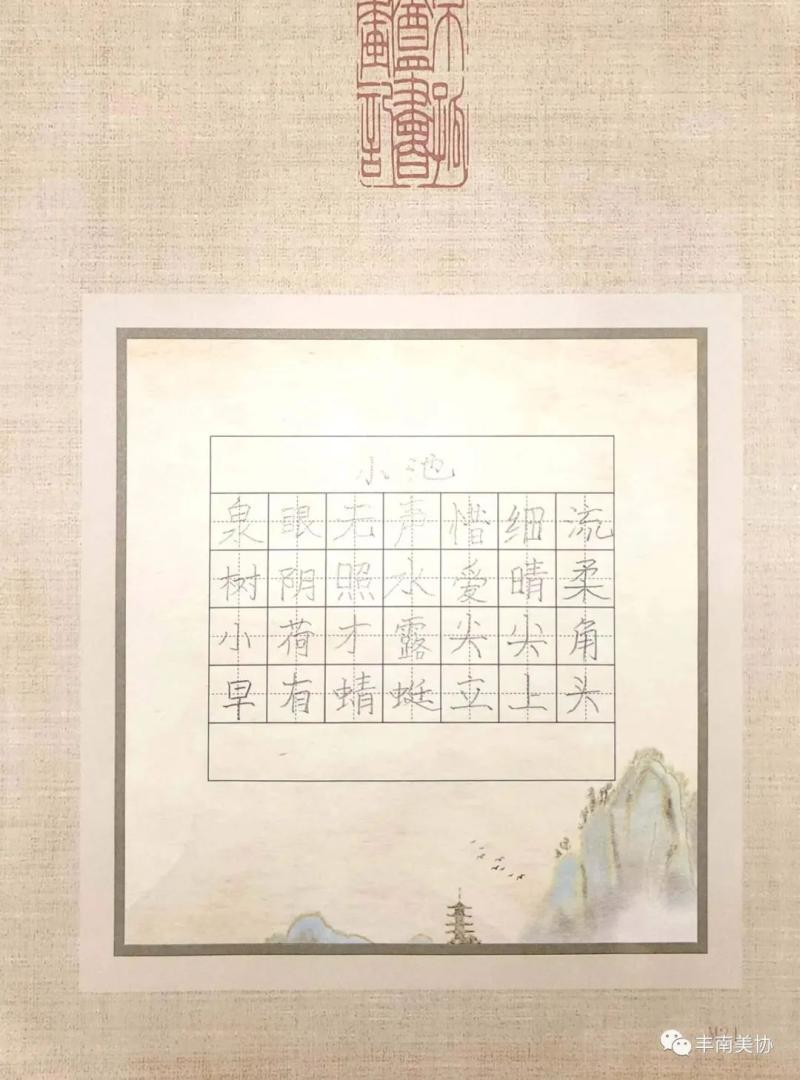 小池
泉眼无声惜细流
树阴照水爱晴柔
小荷才露尖尖角
早有蜻蜓立上头
丰南美协